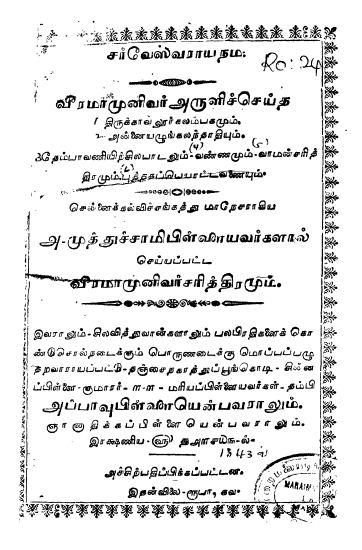 சர்வேஸ்வராயநம:
Ro: 24
வீரமாமுனிவர் அருளிச்செய்த
1 திருக்காவலூர்கலம்பகமும்,
2 அன்னையழுங்கலந்தாதியும்,
3 தேம்பாவணியிற்சிலபாடலும் (4) வண்ணமும் (5) வாமன்சரித்
திரமும், புத்தகப்பெயரட்டவணையும்.
சென்னைக்கல்விச்சங்கத்து மாநேசராகிய
அ-முத்துச்சாமிபிள்ளையவர்களால்
செய்யப்பட்ட
வீரமாமுனிவர்சரித்திரமும்.
இவராலும் சிலவித்துவான்களாலும் பலபிரதிகளைக் கொ
ண்டு சொல்நடைக்கும் பொருணடைக்கு மொப்பப்பழு
தறவாராயப்பட்டு தஞ்சை
ப்பிள்ளை குமாரர் ள-ள மரியப்பிள்ளையவர்கள் தம்பி
அப்பாவுபிள்ளையென்பவராலும்,
ஞானாதிக்கப்பிள்ளை யென்பவராலும்,
இரக்ஷணிய
1843
அச்சிற்பதிப்பிக்கப்பட்டன.
இதன்விலை-ரூபா,
MARAIM